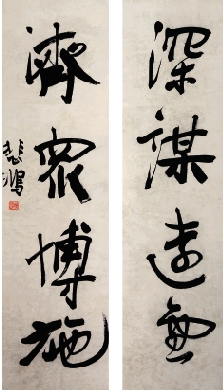 深謀遠慮
濟眾博施
悲鴻